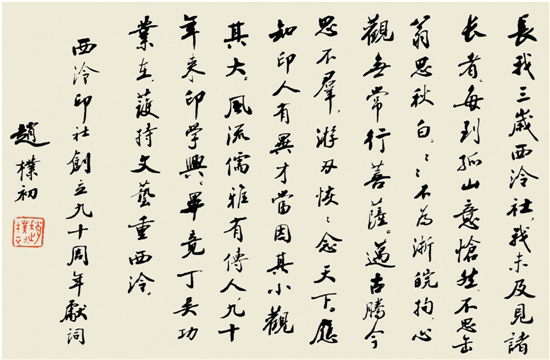 長我三歲西泠社，我未及見諸
长者。每到孤山意愴然，不思缶
翁思秋白。〻〻不為浙皖拘，心
觀無常行菩薩。邁古騰今
思不羣，游刃恢〻念天下。應
知印人有異才，當因其小觀
其大。風流儒雅有傳人，九十
年来印学興。畢竟丁吴功
業在，護持文藝重西泠。
西泠印社創立九十周年獻詞
趙樸初